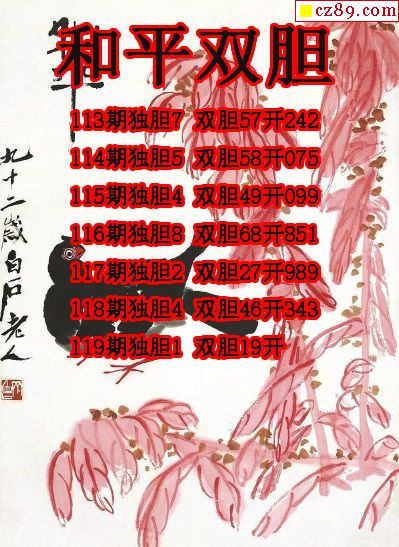 cz89.com
和平双胆
113期独胆7 双胆57开242
114期独胆5 双胆58开075
115期独胆4 双胆49开099
116期独胆8 双胆68开851
117期独胆2 双胆27开989
118期独胆4 双胆46开343
119期独胆1 双胆19开
九十二歲白石老人